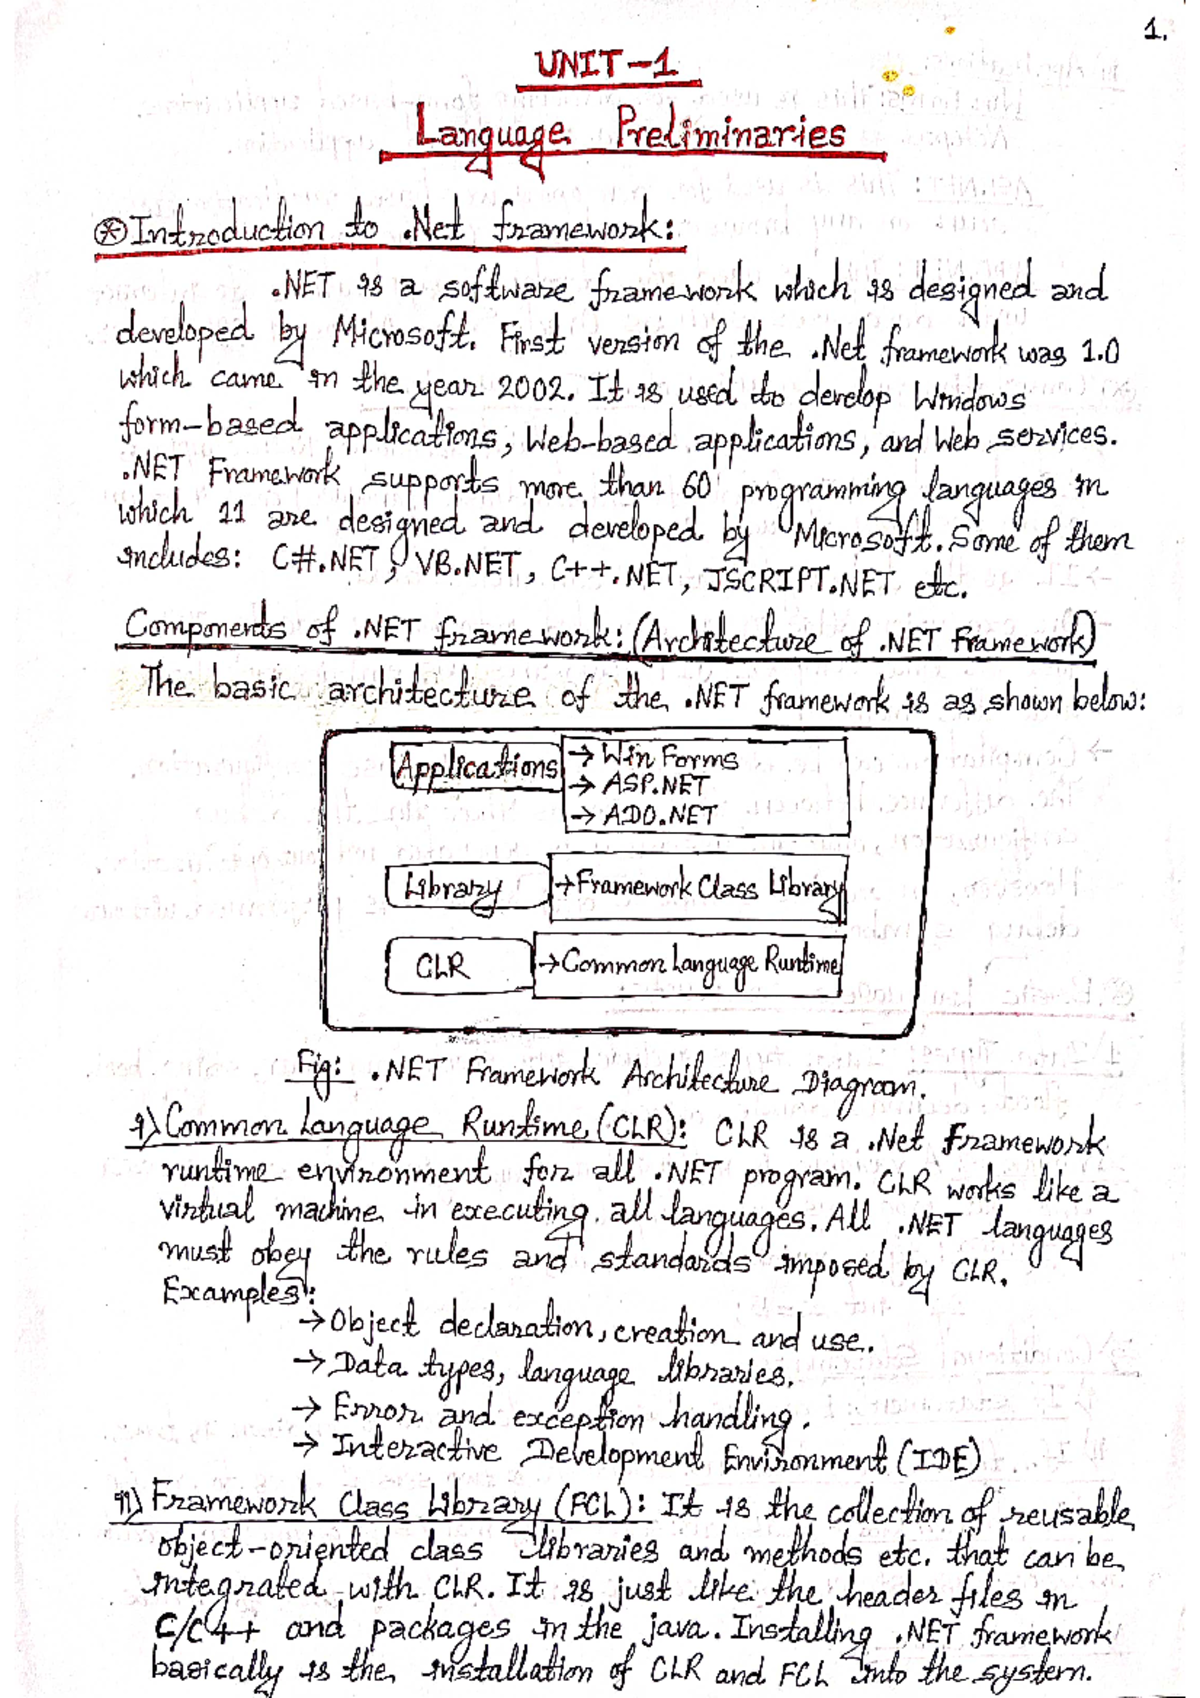 1.
UNIT-1
Language Preliminaries
⊛ Introduction to .Net framework:
.NET is a software framework which is designed and
developed by Microsoft. First version of the .Net framework was 1.0
which came in the year 2002. It is used to develop Windows
form-based applications, Web-based applications, and Web services.
.NET Framework supports more than 60 programming languages in
which 11 are designed and developed by Microsoft. Some of them
includes: C#.NET, VB.NET, C++.NET, JSCRIPT.NET etc.
Components of .NET framework: (Architecture of .NET Framework)
The basic architecture of the .NET framework is as shown below:
Applications
→ Win Forms
→ ASP.NET
→ ADO.NET
Library
→ Framework Class Library
CLR
→ Common Language Runtime
Fig: .NET Framework Architecture Diagram.
i) Common Language Runtime (CLR): CLR is a .Net Framework
runtime environment for all .NET program. CLR works like a
virtual machine in executing all languages. All .NET languages
must obey the rules and standards imposed by CLR.
Examples:
→ Object declaration, creation and use.
→ Data types, language libraries.
→ Error and exception handling.
→ Interactive Development Environment (IDE)
ii) Framework Class Library (FCL): It is the collection of reusable,
object-oriented class libraries and methods etc. that can be
integrated with CLR. It is just like the header files in
C/C++ and packages in the java. Installing .NET framework
basically is the installation of CLR and FCL into the system.